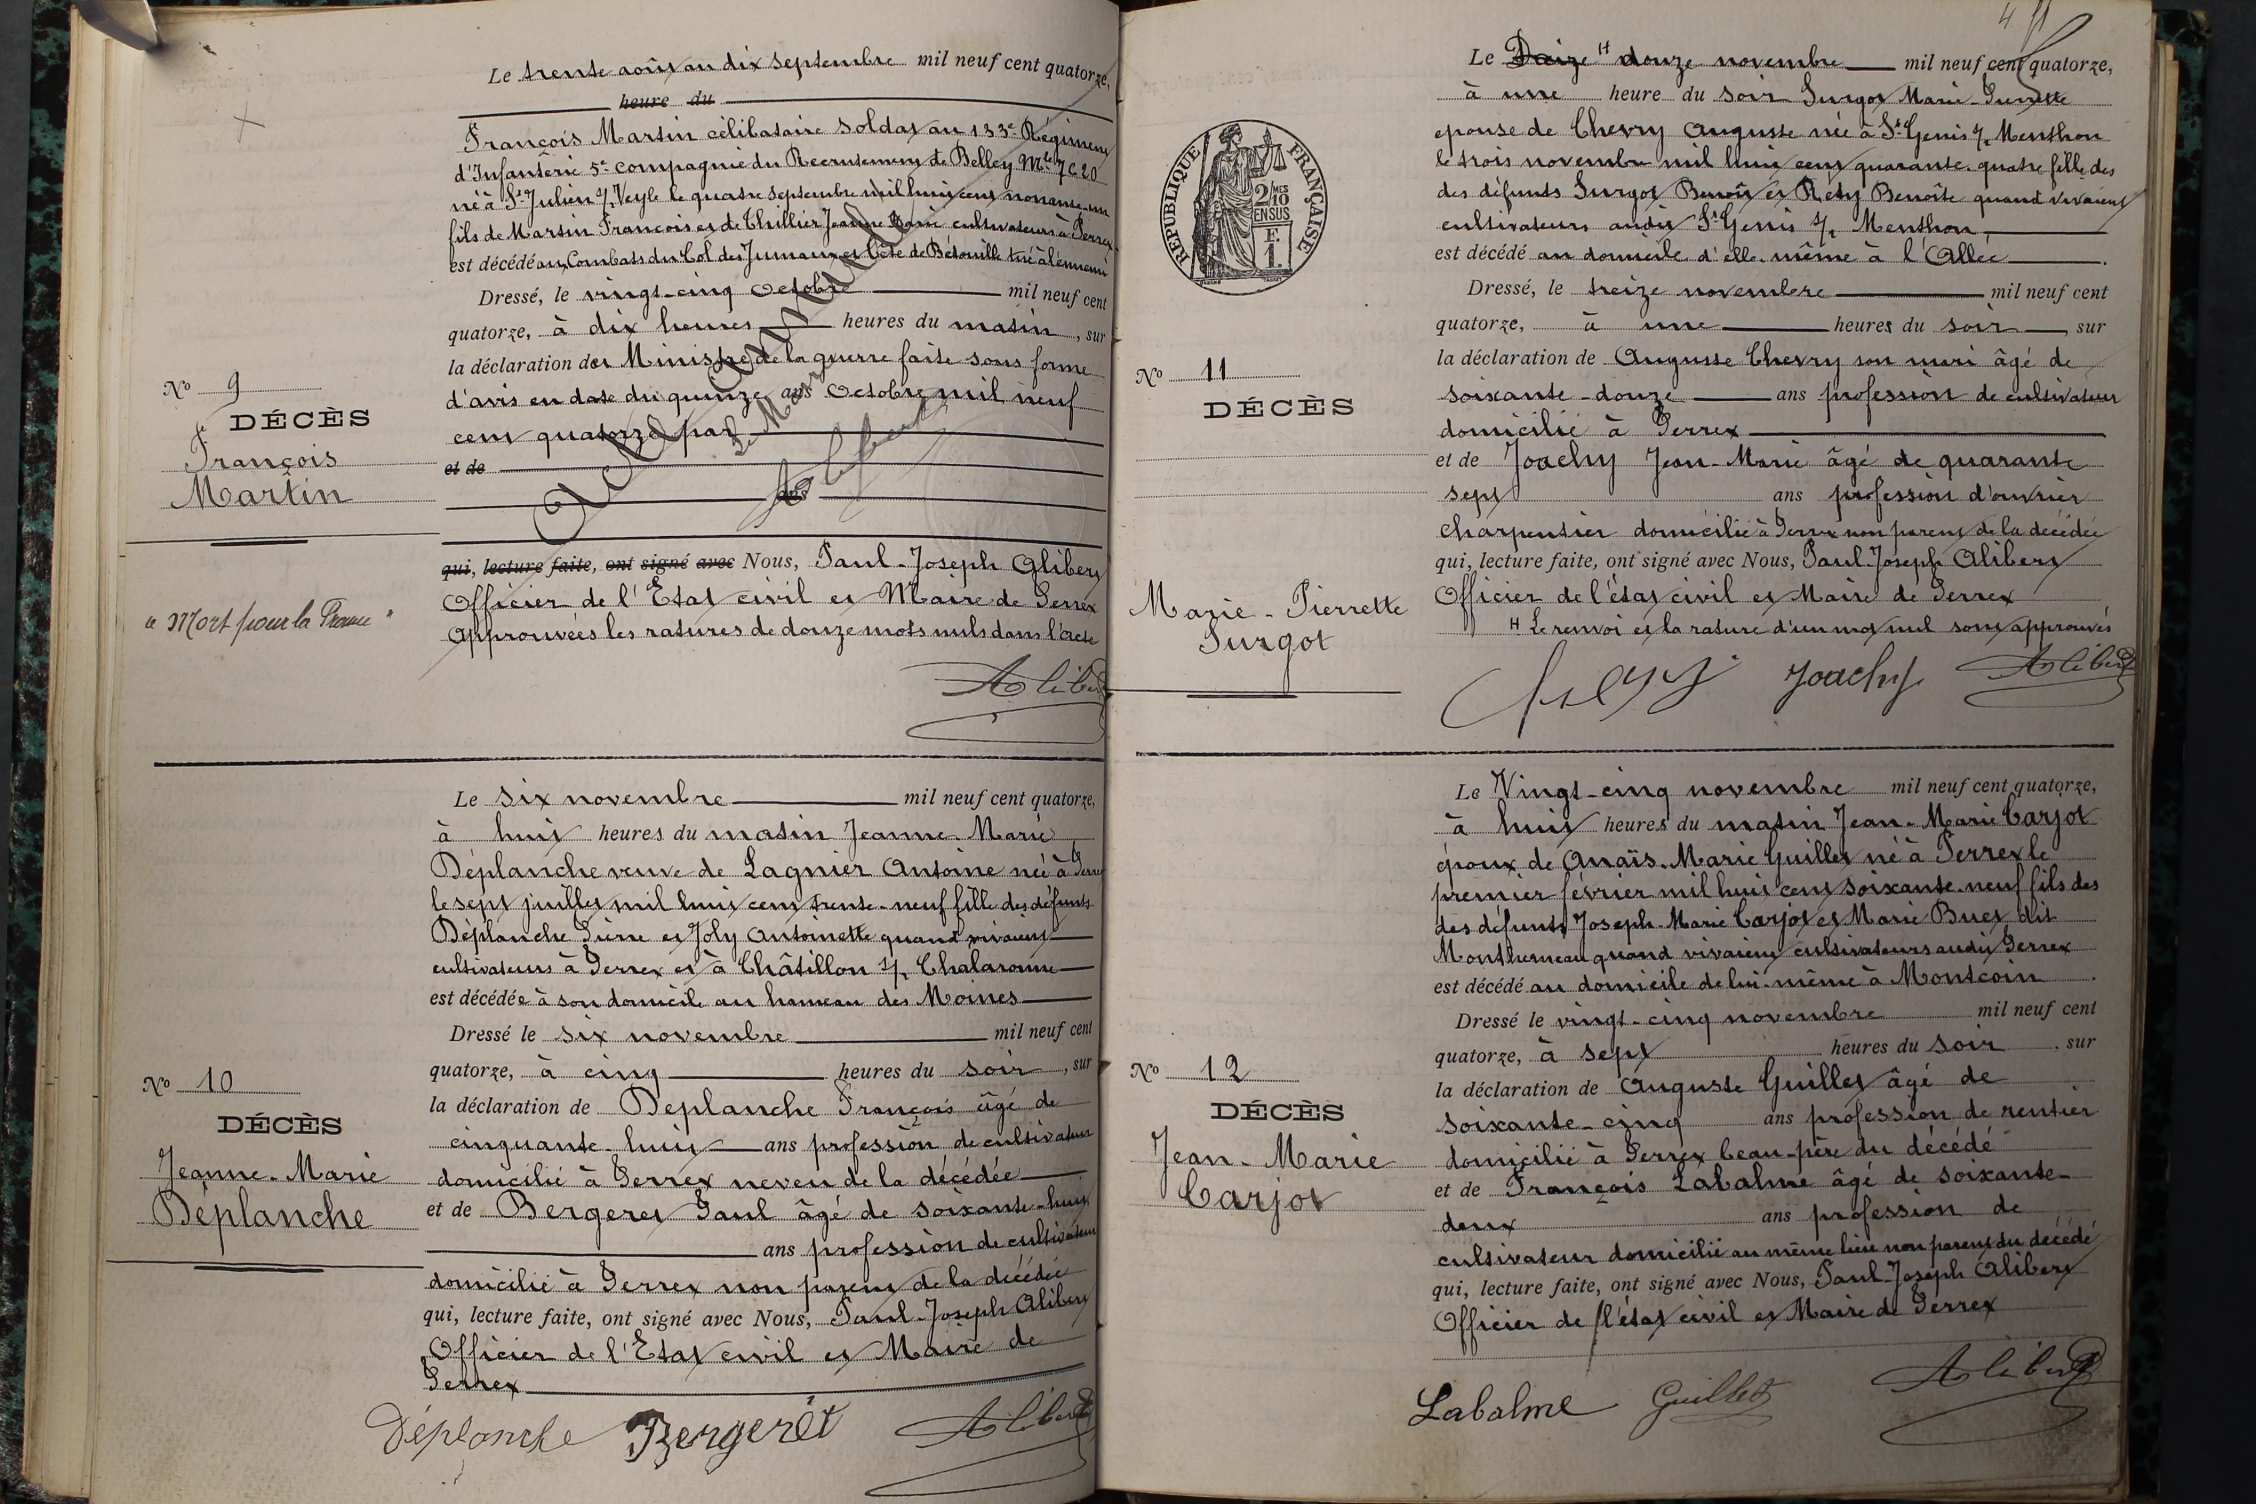 Le trente août au dix septembre mil neuf cent quatorze,
heure du
François Martin célibataire soldat au 133e Régiment
d'Infanterie 5e compagnie du Recrutement de Belley Mle 7020
né à St Julien s/ Veyle le quatre septembre mil huit cent nonante-un
fils de Martin François et de Thillier Jeanne Marie cultivateurs à Perrex
est décédé aux Combats du Col des Jumaux et Côte de Bétouille tué à l'ennemi
Dressé, le vingt-cinq Octobre mil neuf cent
quatorze, à dix heures heures du matin, sur
la déclaration du Ministre de la guerre faite sous forme
d'avis en date du quinze ans Octobre mil neuf
cent quatorze par
et de
ans
qui, lecture faite, ont signé avec Nous, Paul-Joseph Alibert
Officier de l'Etat civil et Maire de Perrex
Approuvées les ratures de douze mots nuls dans l'acte
Acte annulé
Le Maire
Alibert
No 9
DÉCÈS
François
Martin
"Mort pour la France"
Alibert
Le six novembre mil neuf cent quatorze,
à huit heures du matin Jeanne-Marie
Déplanche veuve de Lagnier Antoine née à Perrex
le sept juillet mil huit cent trente-neuf fille des défunts
Déplanche Pierre et Joly Antoinette quand vivaient
cultivateurs à Perrex et à Châtillon s/ Chalaronne
est décédée à son domicile au hameau des Moines
Dressé le six novembre mil neuf cent
quatorze, à cinq heures du soir, sur
la déclaration de Déplanche François âgé de
cinquante-huit ans profession de cultivateur
domicilié à Perrex neveu de la décédée
et de Bergeret Paul âgé de soixante-huit
ans profession de cultivateur
domicilié à Perrex non parent de la décédée
qui, lecture faite, ont signé avec Nous, Paul-Joseph Alibert
Officier de l'Etat civil et Maire de
Perrex
No 10
DÉCÈS
Jeanne-Marie
Déplanche
Déplanche Bergeret Alibert
4
Le Treize H douze novembre mil neuf cent quatorze,
à une heure du soir Surgot Marie-Pierrette
epouse de Chevry Auguste née à St Genis s/ Menthon
le trois novembre mil huit cent quarante-quatre fille des
des défunts Surgot Benoît et Réty Benoîte quand vivaient
cultivateurs audit St Genis s/ Menthon
est décédé au domicile d'elle-même à l'Allée.
Dressé, le treize novembre mil neuf cent
quatorze, à une heures du soir, sur
la déclaration de Auguste Chevry son mari âgé de
soixante-douze ans profession de cultivateur
domicilié à Perrex
et de Joachy Jean-Marie âgé de quarante
sept ans profession d'ouvrier
charpentier domicilié à Perrex non parent de la décédée
qui, lecture faite, ont signé avec Nous, Paul-Joseph Alibert
Officier de l'état civil et Maire de Perrex
H Le renvoi et la rature d'un mot nul sont approuvés
RÉPUBLIQUE FRANÇAISE
2/10 MES
EN SUS
F.
1.
No 11
DÉCÈS
Marie-Pierrette
Surgot
Joachy Alibert
Le Vingt-cinq novembre mil neuf cent quatorze,
à huit heures du matin Jean-Marie Carjot
époux de Anaïs-Marie Guillet né à Perrex le
premier février mil huit cent soixante-neuf fils des
des défunts Joseph-Marie Carjot et Marie Buet dit
Monthumeau quand vivaient cultivateurs audit Perrex
est décédé au domicile de lui-même à Montcoin.
Dressé le vingt-cinq novembre mil neuf cent
quatorze, à sept heures du soir. sur
la déclaration de Auguste Guillet âgé de
soixante-cinq ans profession de rentier
domicilié à Perrex beau-père du décédé
et de François Labalme âgé de soixante-
deux ans profession de
cultivateur domicilié au même lieu non parent du décédé
qui, lecture faite, ont signé avec Nous, Paul-Joseph Alibert
Officier de l'état civil et Maire de Perrex
No 12
DÉCÈS
Jean-Marie
Carjot
Labalme Guillet Alibert